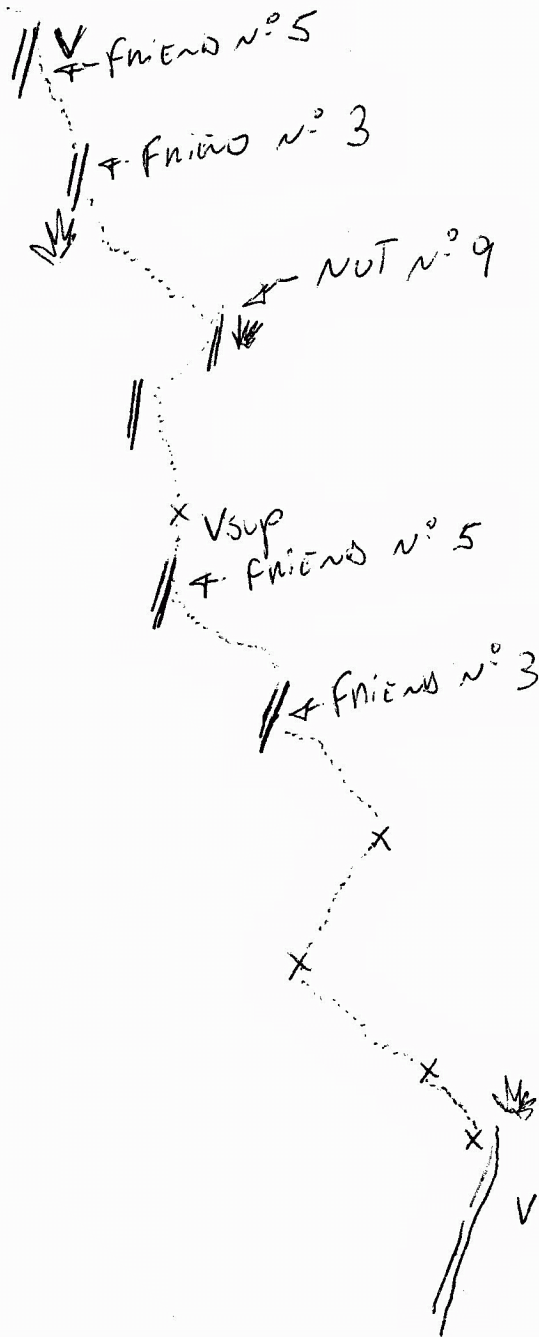 V
FRIEND Nº 5
FRIEND Nº 3
NUT Nº 9
x
Vsup
FRIEND Nº 5
FRIEND Nº 3
x
x
x
x
V